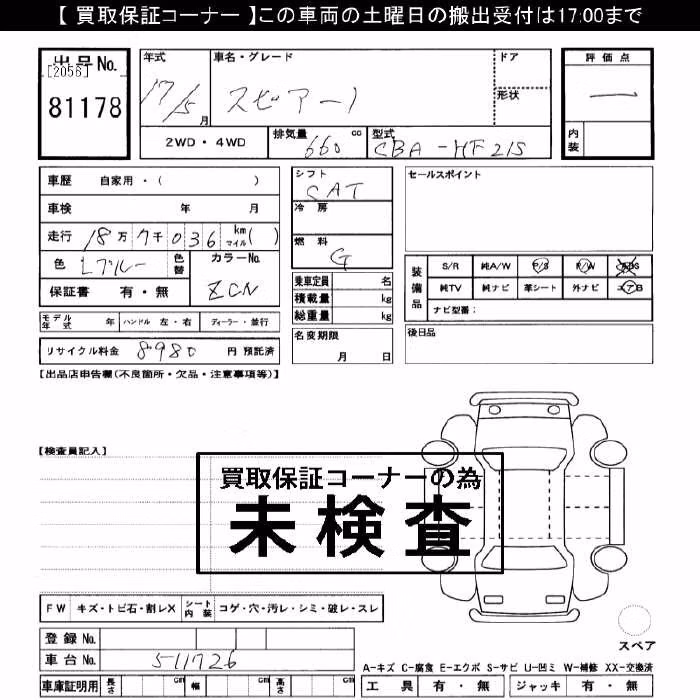 【 買取保証コーナー 】この車両の土曜日の搬出受付は17:00まで
出品No.
[2056]
81178
年式
17/5 月
車名・グレード
スピアーノ
ドア
形状
評価点
—
内装
2WD・4WD
排気量
660 cc
型式
CBA-HF21S
車歴 自家用・( )
車検 年 月
走行 18万7千036 km マイル( )
色 Lブルー
色替
カラーNo.
ZCN
保証書 有・無
モデル年式 年 ハンドル 左・右 ディーラー・並行
リサイクル料金 8980 円 預託済
シフト
CAT
冷房
燃料
G
乗車定員 名
積載量 kg
総重量 kg
名変期限
月 日
セールスポイント
装備品
S/R 純A/W P/S P/W ABS
純TV 純ナビ 革シート 外ナビ エアB
ナビ型番:
後日品
【出品店申告欄(不良箇所・欠品・注意事項等)】
【検査員記入】
買取保証コーナーの為
未検査
FW キズ・トビ石・割レX シート内装 コゲ・穴・汚レ・シミ・破レ・スレ
登録No.
車台No. 511726
車庫証明用 長さ cm 幅 cm 高さ cm
スペア
A-キズ C-腐食 E-エクボ S-サビ U-凹ミ W-補修 XX-交換済
工具 有・無 ジャッキ 有・無